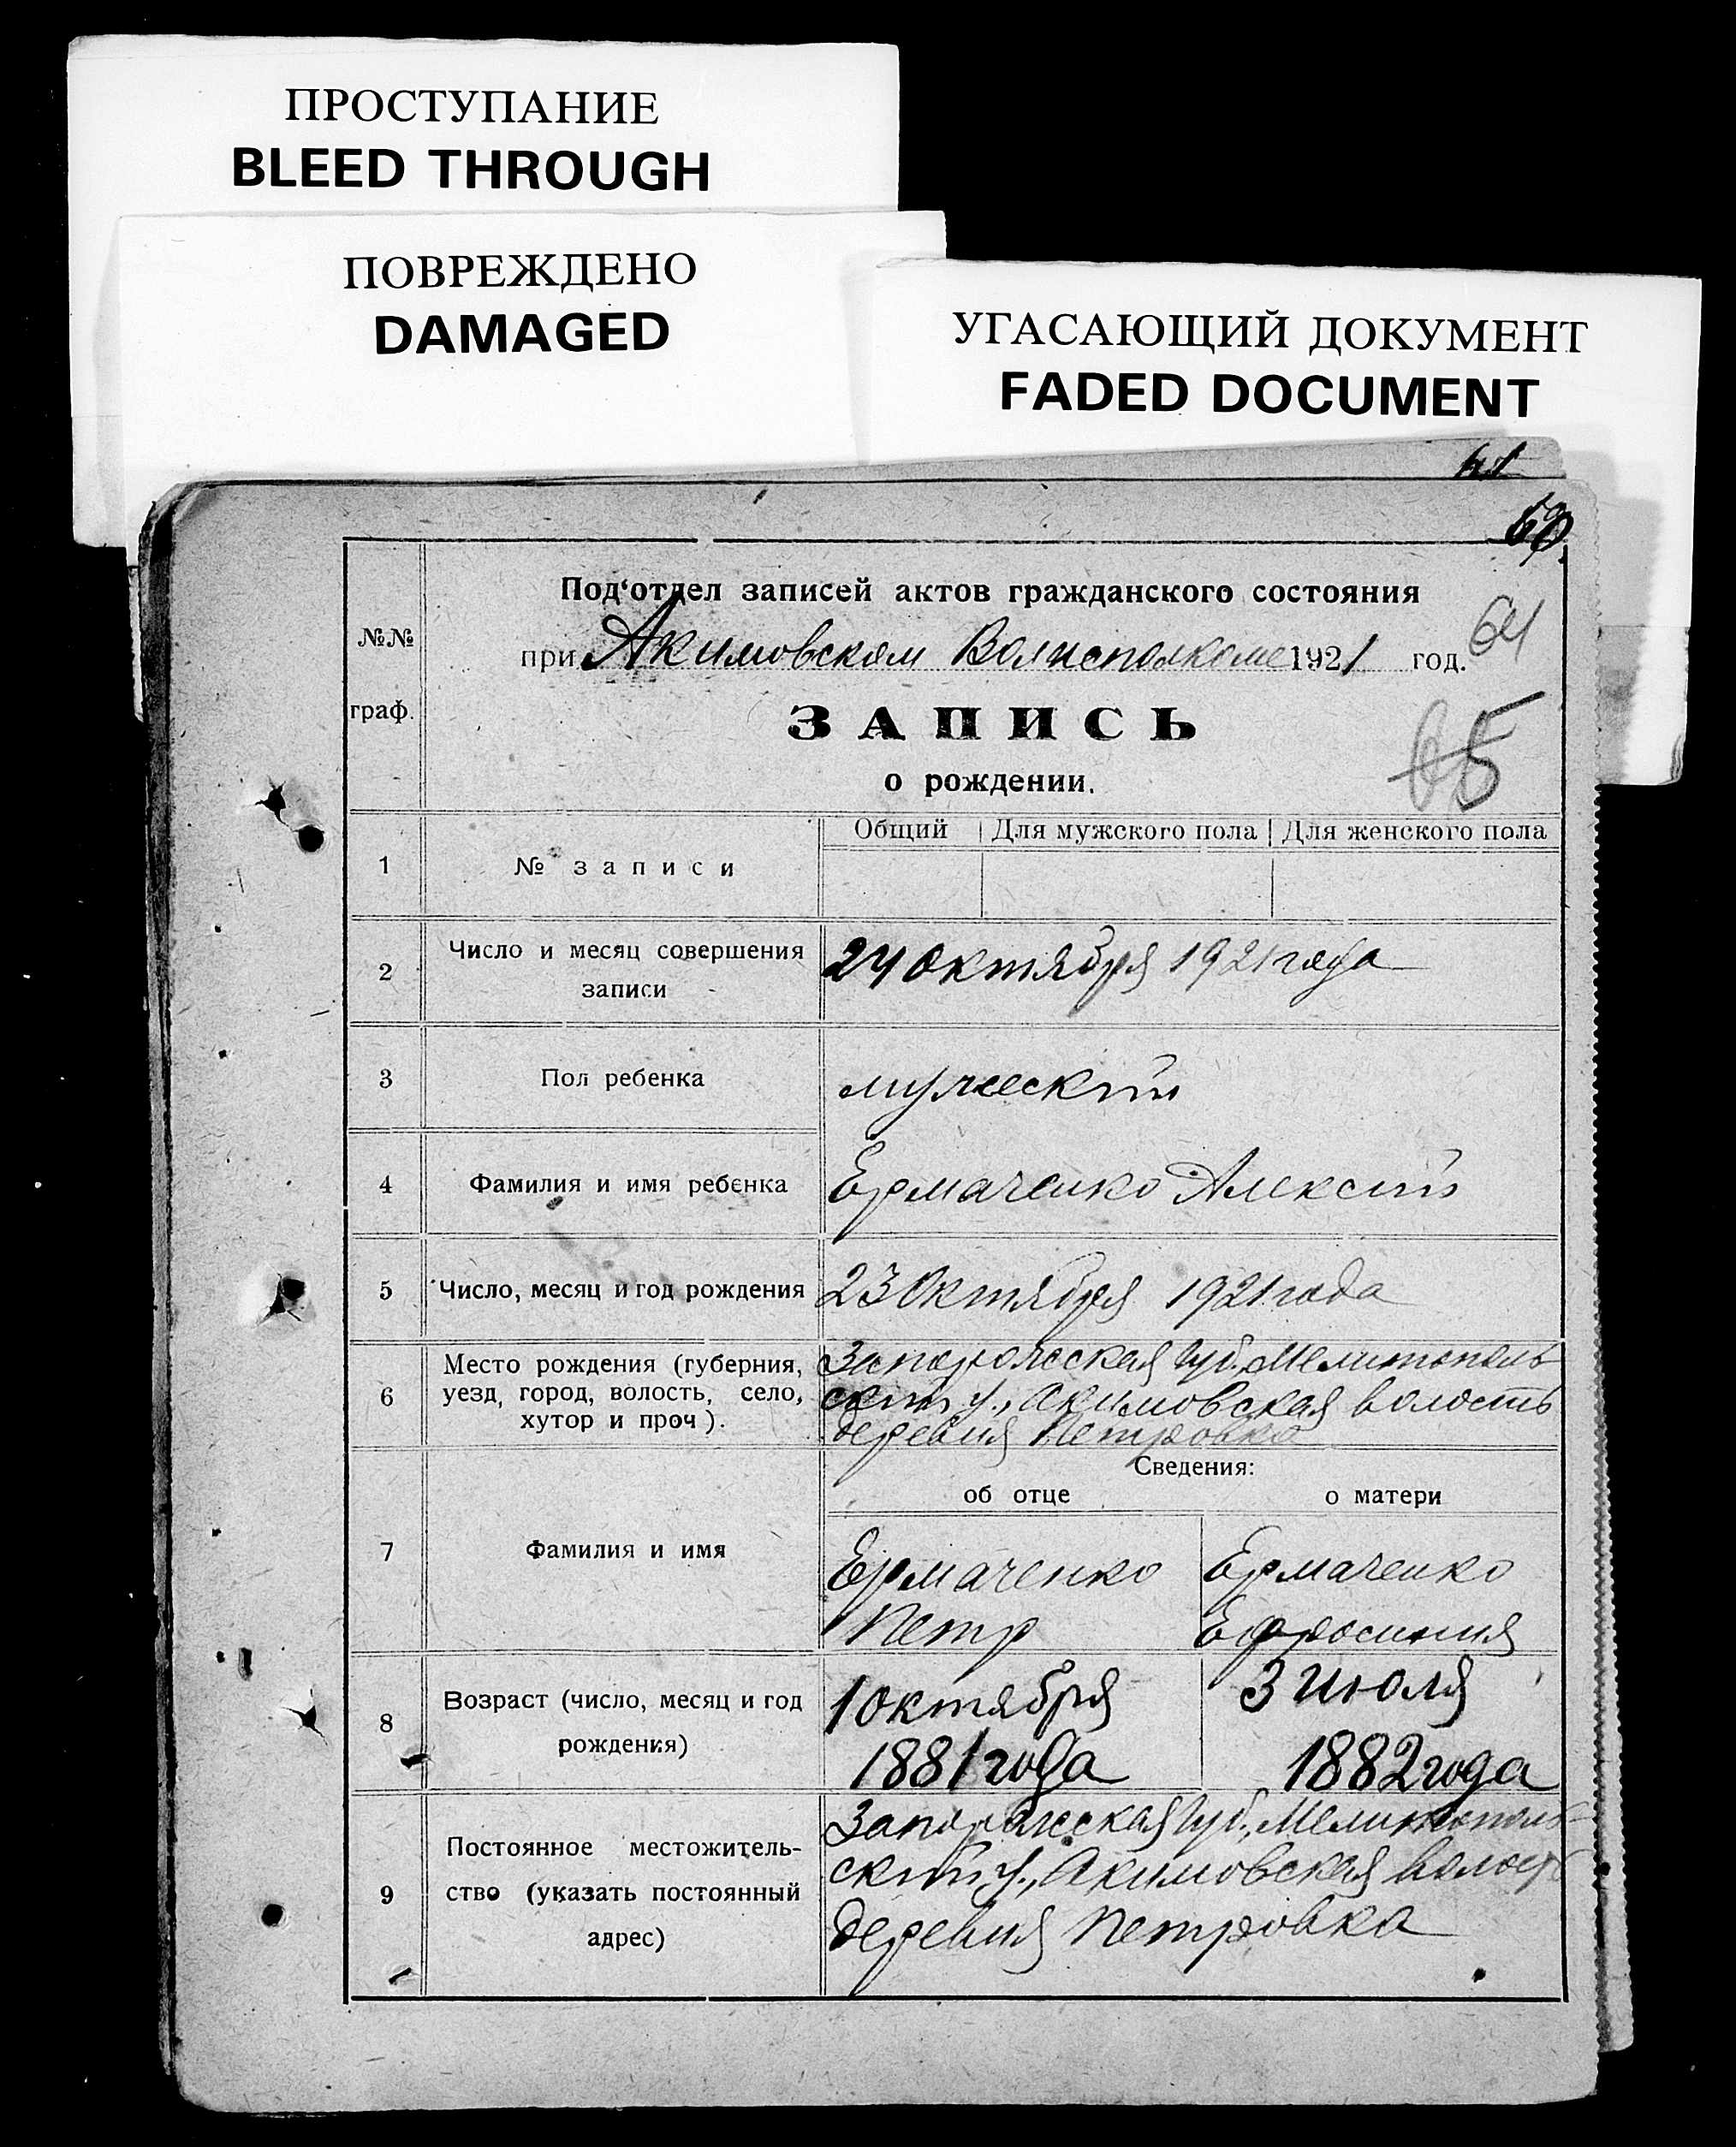 ПРОСТУПАНИЕ
BLEED THROUGH
ПОВРЕЖДЕНО
DAMAGED
УГАСАЮЩИЙ ДОКУМЕНТ
FADED DOCUMENT
Под‘отдел записей актов гражданского состояния
при Акимовском Волисполкоме 1921 год.
64
65
№№
граф.
ЗАПИСЬ
о рождении.
1
№ записи
Общий
Для мужского пола
Для женского пола
2
Число и месяц совершения
записи
24 Октября 1921 года
3
Пол ребенка
мужеский
4
Фамилия и имя ребенка
Ермаченко Алексей
5
Число, месяц и год рождения
23 Октября 1921 года
6
Место рождения (губерния,
уезд, город, волость, село,
хутор и проч).
Запорожская Губ. Мелитополь-
ский у., Акимовская волость
деревня Петровка
Сведения:
об отце
о матери
7
Фамилия и имя
Ермаченко
Петр
Ермаченко
Ефросиния
8
Возраст (число, месяц и год
рождения)
1 октября
1881 года
3 июля
1882 года
9
Постоянное местожитель-
ство (указать постоянный
адрес)
Запорожская Губ., Мелитополь-
ский у., Акимовская волость
деревня Петровка